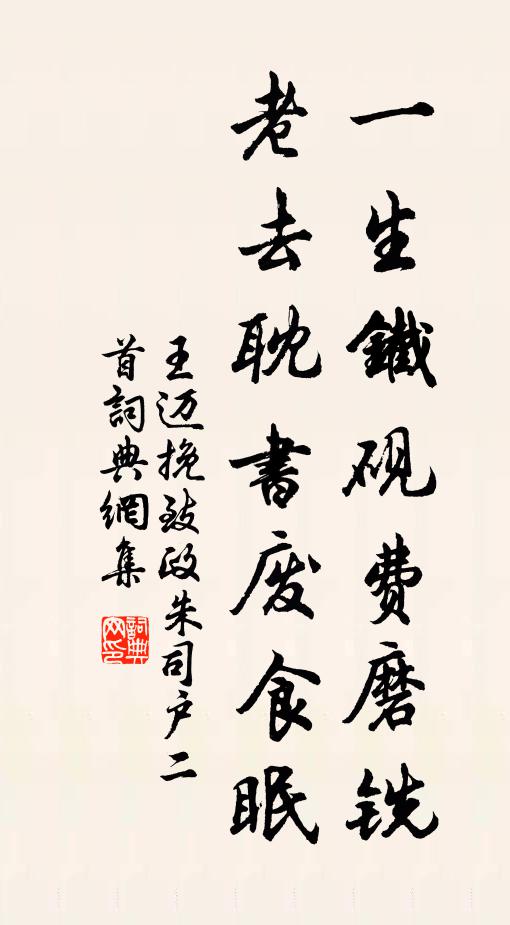 一生鐵硯費磨銑
老去耽書废食眠
王迈挽致政朱司户二
首詞典網集
詞典网印